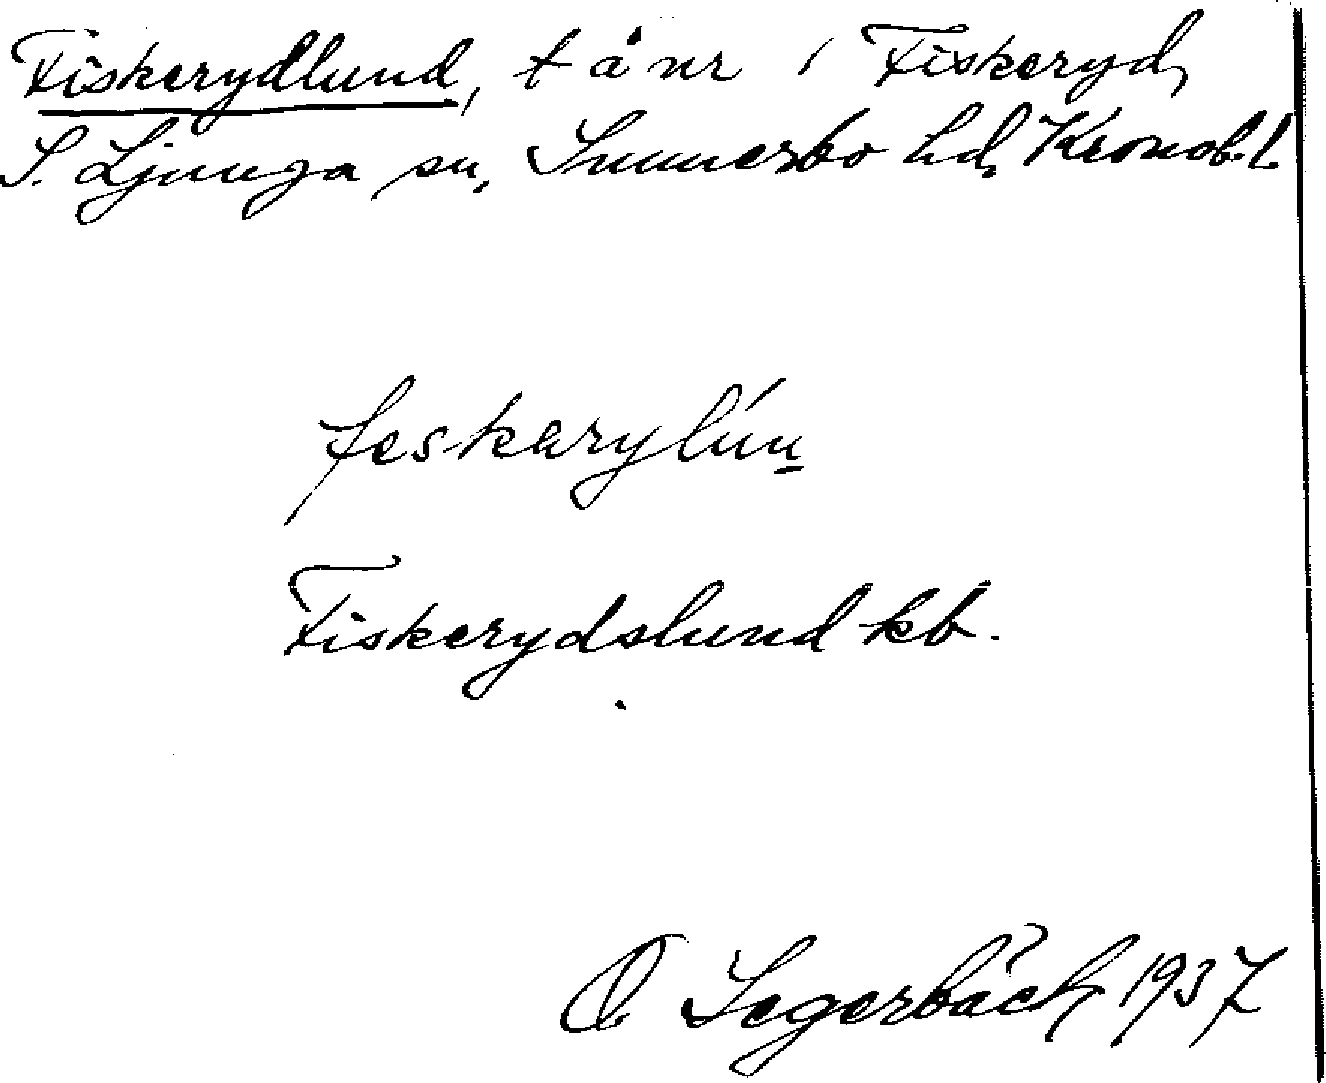 Fiskerydlund, t å nr 1 Fiskeryd,
S. Ljunga sn, Sunnerbo hd, Kronob. l.
feskarylún
Fiskerydslund kb.
O Segerbäck 1937